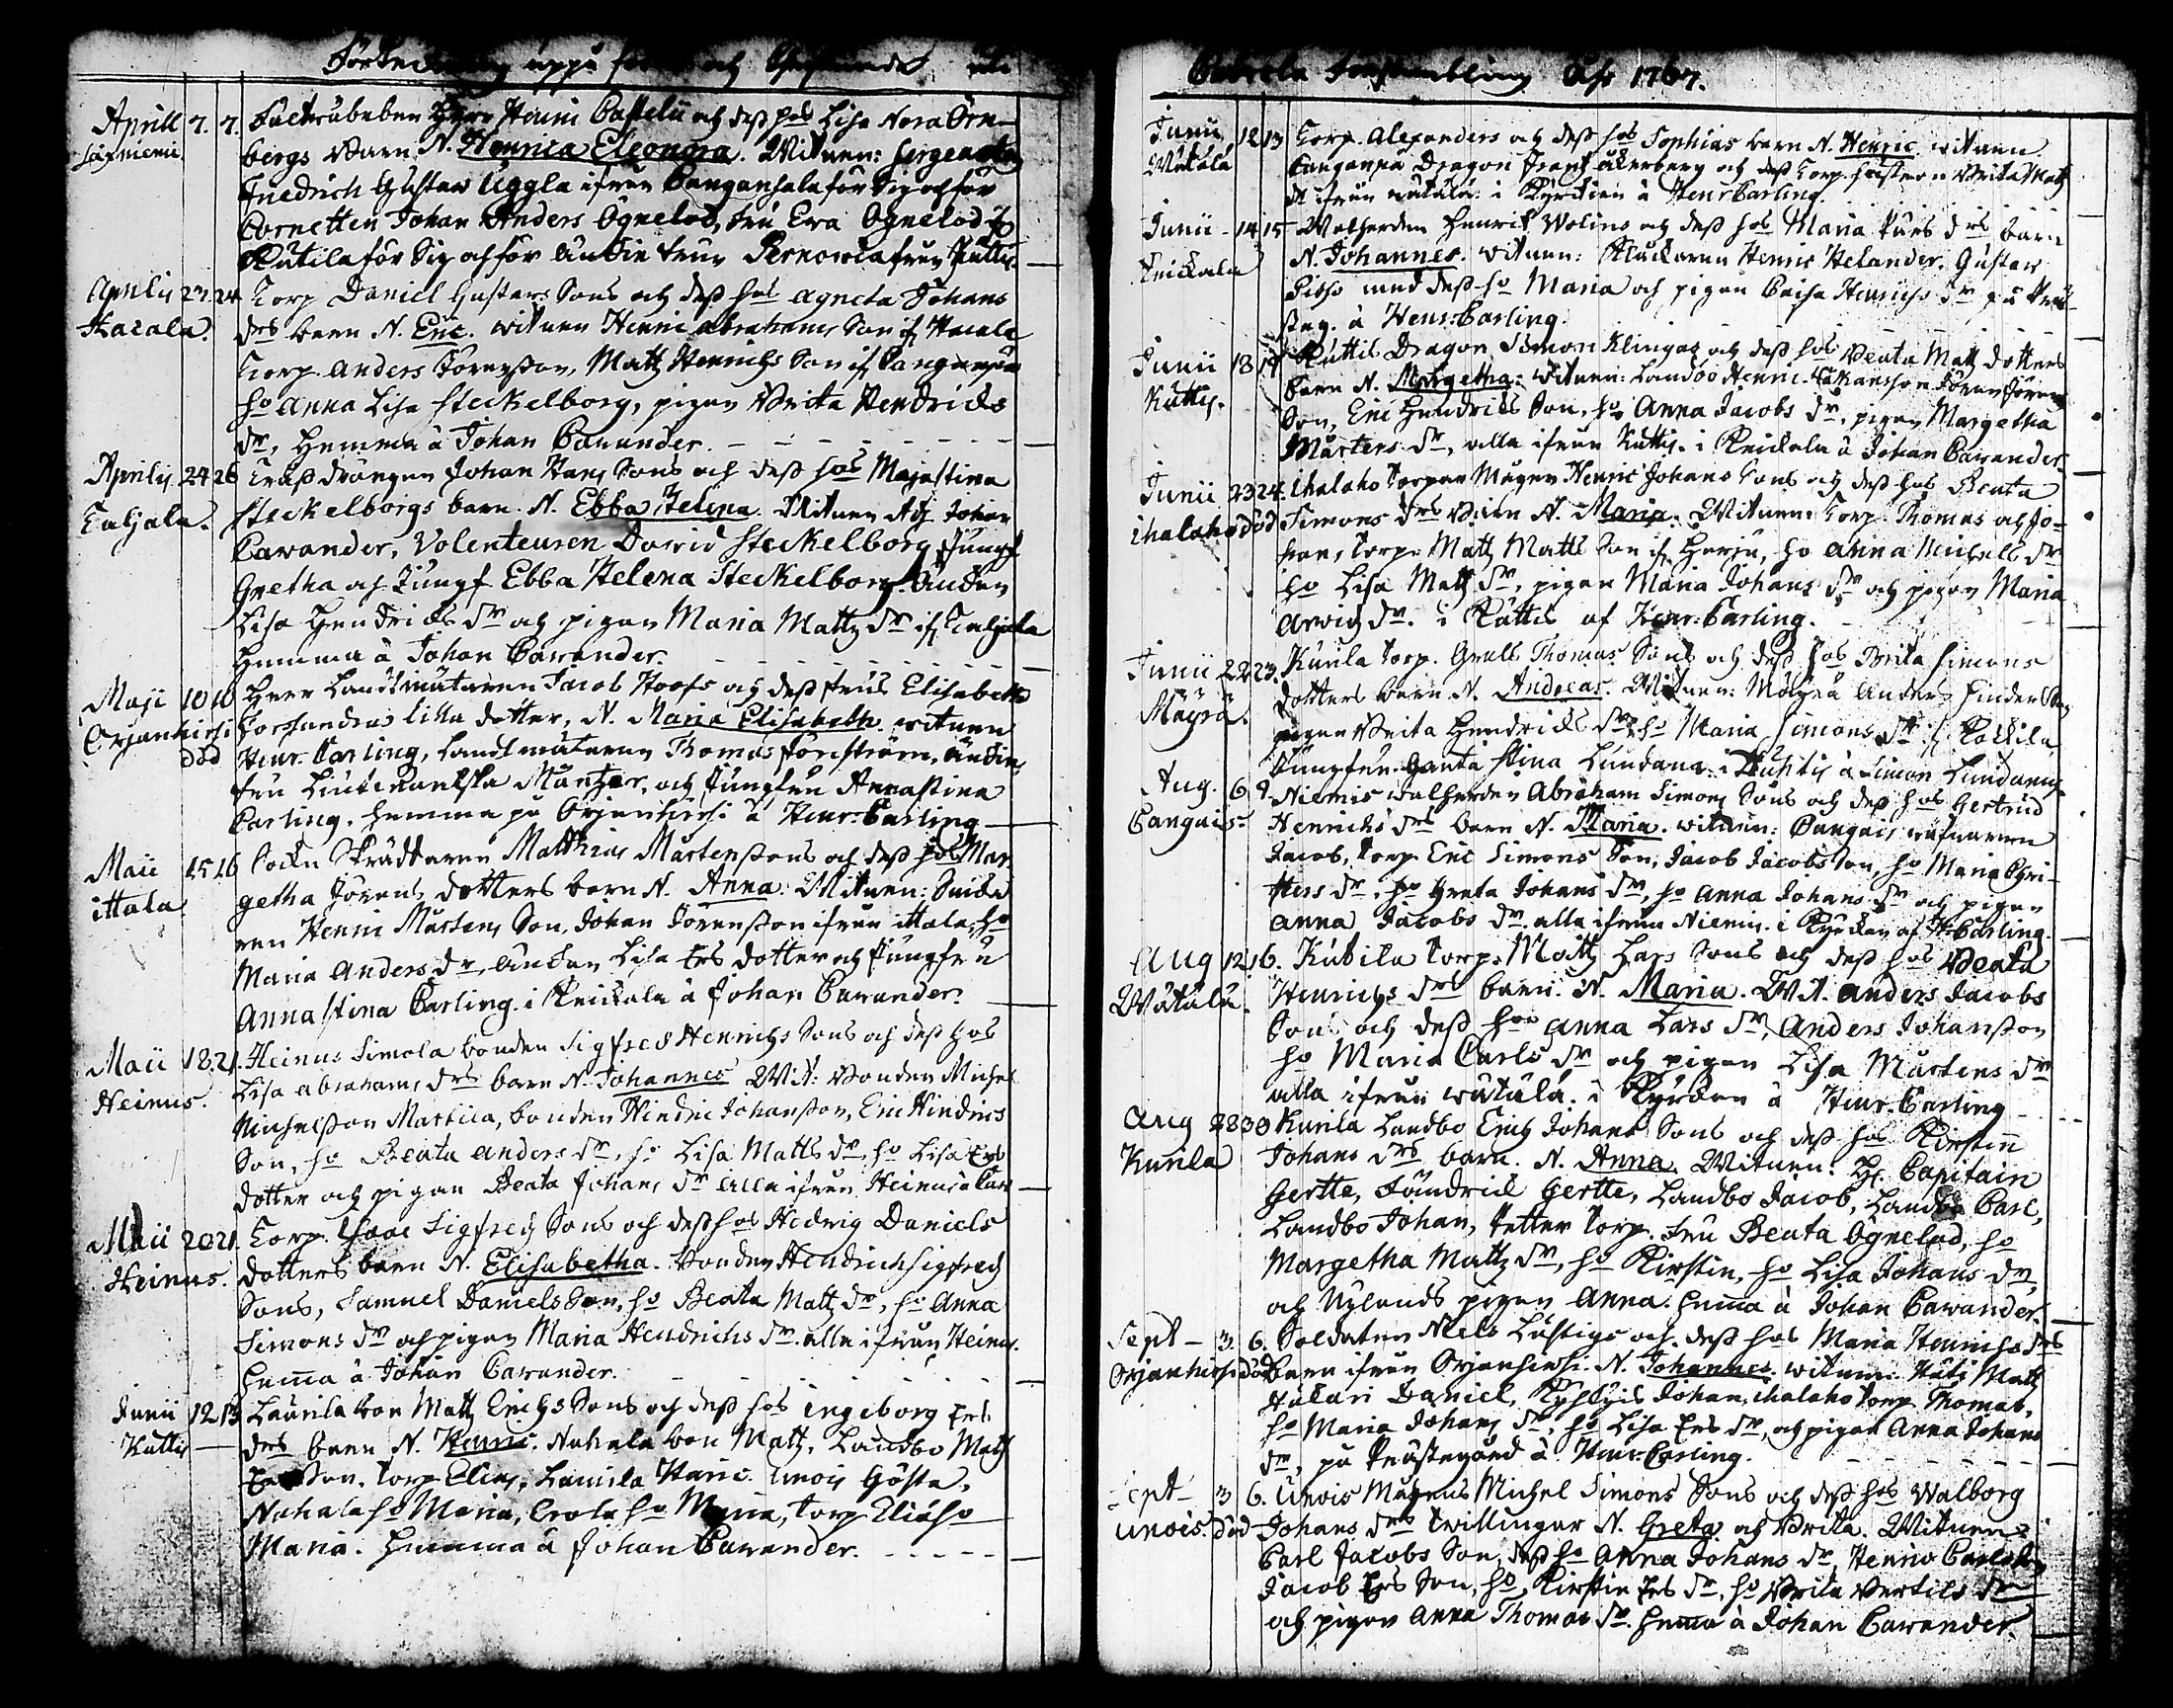 Förteckning uppå födde och
April 7. 7. Fältväbeben Herr Henric Castelii och dess hos Lisa Nora Örn-
bergs Barn. N. Henrica Eleonora. Witnen: Sergeanten
Friedrich Gustaw Uggla ifrån Cangansala för Sig och för
Cornetten Johan Anders Ögnelod, fru Ewa Ögnelod
Kutila för Sig och för
Aprilis 23. 24 Torp Daniel Gustavs Sons och dess hos Agneta Johans
Hacala. drs barn N. Eric. witnen Henric Abrahams Son if Hacala
Torp. Anders Jörensson, Matz Henrichs Son if
ho Anna Lisa Steckelborg, pigan Brita Hendrics
dr, Hemma à Johan Cavander.
Aprilis 24 26 drängen Johan Hans Sons och dess hos Maja Stina
Taljala. Steckelborgs barn. N. Ebba Helena. Witnen Johan
Cavander, Volenteuren David Steckelborg Jungf
Gretha och Jungf. Ebba Helena Steckelborg.
Lisa Hendrics dr och pigan Maria Mattz dr if Taljala
Hemma à Johan Cavander.
Maji 10 10 Herr Landtmätaren Jacob Hoofs och dess frus Elisabeth
Orjanhirsi lilla dotter, N. Maria Elisabeth. witnen
död Henr. Carling, Landtmätaren Thomas
fru Lieutenantska Müntzer, och Jungfru Anna Stina
Carling. hemma på Orjanhirsi à Henr. Carling
Maii 15 16 Sockn Skräddaren Matthias Mårtenssons och dess hos Mar
ittala getha Jörens dotters barn N. Anna. Witnen:
Henric Mårtens Son, Johan Jörensson ifrån ittala, ho
Maria Anders dr, Lisa Ers dotter och Jungfru
Anna Stina Carling. i Knickala à Johan Cavander.
Maii 18. 21. Heinus Simola bonden Sigfred Henrichs Sons och dess hos
Heinus. Lisa Abrahams drs barn N. Johannes Wit: Bonden Michel
Michelsson Martila, bonden Hindric Johansson, Eric Hindrics
Son, ho Beata Anders dr, ho Lisa Matts dr, ho Lisa Ers
dotter och pigan Beata Johans dr alla ifrån Heinus
Maii 20 21 Torp. Isaac Sigfreds Sons och dess hos Hedvig Daniels
Heinus. dotters barn N. Elisabetha. Bonden Hendrich Sigfreds
Sons, Samuel Daniels Son, ho Beata Matz dr, ho Anna
Simons dr och pigan Maria Hendrichs dr alla ifrån Heinus.
hema à Johan Cavander.
Junii 12 13 Laurila bon Matz Erichs Sons och dess hos Ingeborg Ers
Kuttis drs barn N. Henric. Nuhala bon Matz, Landbo Matz
Ers Son. Torp Elias, Laurila Henric. Unois Gösta,
Nuhala ho Maria, ho Maria, Torp Elias ho
Maria. Hemma à Johan Cavander.
Församling Åhr 1767.
Junii 12 13 Corp. Alexanders och dess hos Sophias barn N. Henric witnen
Wätälä Dragon Frans Åkerberg och dess Corp. Brita Matz
dr ifrån wätälä. i Kyrckien à Henr Carling.
Junii 14 15 Henric Wolins och dess hos Maria Lars drs barn
Knickala N. Johannes. witnen: Klåckaren Henric Helander. Gustav
med dess ho Maria och pigan Caisa Henrichs dr på
à Henr: Carling.
Junii 18 19 Kuttis Dragon Simon Klingas och dess hos Beata Matz dotters
Kuttis. barn N. Margetha. Witnen: Landbo Henric Jören Jörens
Son, Eric Hendrics Son, ho Anna Jacobs dr, pigan Margetha
Mårtens dr, alla ifrån Kuttis. i Knickala à Johan Cavander.
Junii 23 24. ihalaho Torpar Mågen Henric Johans Sons och dess hos Beata
ihalaho död Simons drs Barn N. Maria. Witnen: Torp. Thomas och Jo-
han, Torp. Matz Matts Son if Harju, ho Anna Michells dr
ho Lisa Matz dr, pigan Maria Johans dr och pigan Maria
Arvids dr. i Kuttis af Henr: Carling.
Junii 22 23. Kurila Torp. Grels Thomas Sons och dess hos Brita Simons
Mäyrä. dotters barn N. Andreas. Witnen: Mäyrä Anders Hinders Son
pigan Brita Hendrics dr, ho Maria Simons dr if Kockila
Jungfru Greta Stina Lundana. i Kuttis à Simon Lundanus.
Aug. 6 9 Niemis walherden Abraham Simons Sons och dess hos Gertrud
Cangais. Henrichs drs barn N. Maria. witnen: Cangais
Jacob, Torp. Eric Simons Son, Jacob Jacobs Son, ho Maria Chri-
sters dr, ho Greta Johans dr, ho Anna Johans dr och pigan
Anna Jacobs dr. alla ifrån Niemis. i Kyrckan af H: Carling.
Aug 12 16. Kutila Torp. Matz Lars Sons och dess hos Beata
Wätälä. Henrichs drs barn. N. Maria. Wit. Anders Jacobs
Sons och dess hos Anna Lars dr, Anders Johansson
ho Maria Carls dr och pigan Lisa Mårtens dr
alla ifrån wätälä. i Kyrckan à Henr. Carling
Aug 28 30 Kurila Landbo Erich Johans Sons och dess hos Kirstin
Kurila Johans drs barn. N. Anna. Witnen: H. Capitain
Gertte, Fändrick Gertte, Landbo Jacob, Landbo Carl,
Landbo Johan, Petter Torp. fru Beata Ögnelod, ho
Margetha Mattz dr, ho Kirstin, ho Lisa Johans dr,
och Nylands pigan Anna. hema à Johan Cavander.
Sept 3. 6. Soldaten Niels Lustigs och dess hos Maria Henrichs drs
Orjanhirsi död barn ifrån Orjanhirsi. N. Johannes. witnen: Matz
Daniel, Johan, ihalaho Torp. Thomas,
ho Maria Johans dr, ho Lisa Ers dr, och pigan Anna Johans
dr, på Prästegård à Henr: Carling.
Sept 3 6. Unois Mågens Michel Simons Sons och dess hos Walborg
Unois. död Johans drs twillingar N. Greta och Brita. Witnen:
Carl Jacobs Son, dess ho Anna Johans dr, Henric Carls Son,
Jacob Ers Son, ho Kirstin Ers dr, ho Brita Bertils dr
och pigan Anna Thomas dr. hema à Johan Cavander.